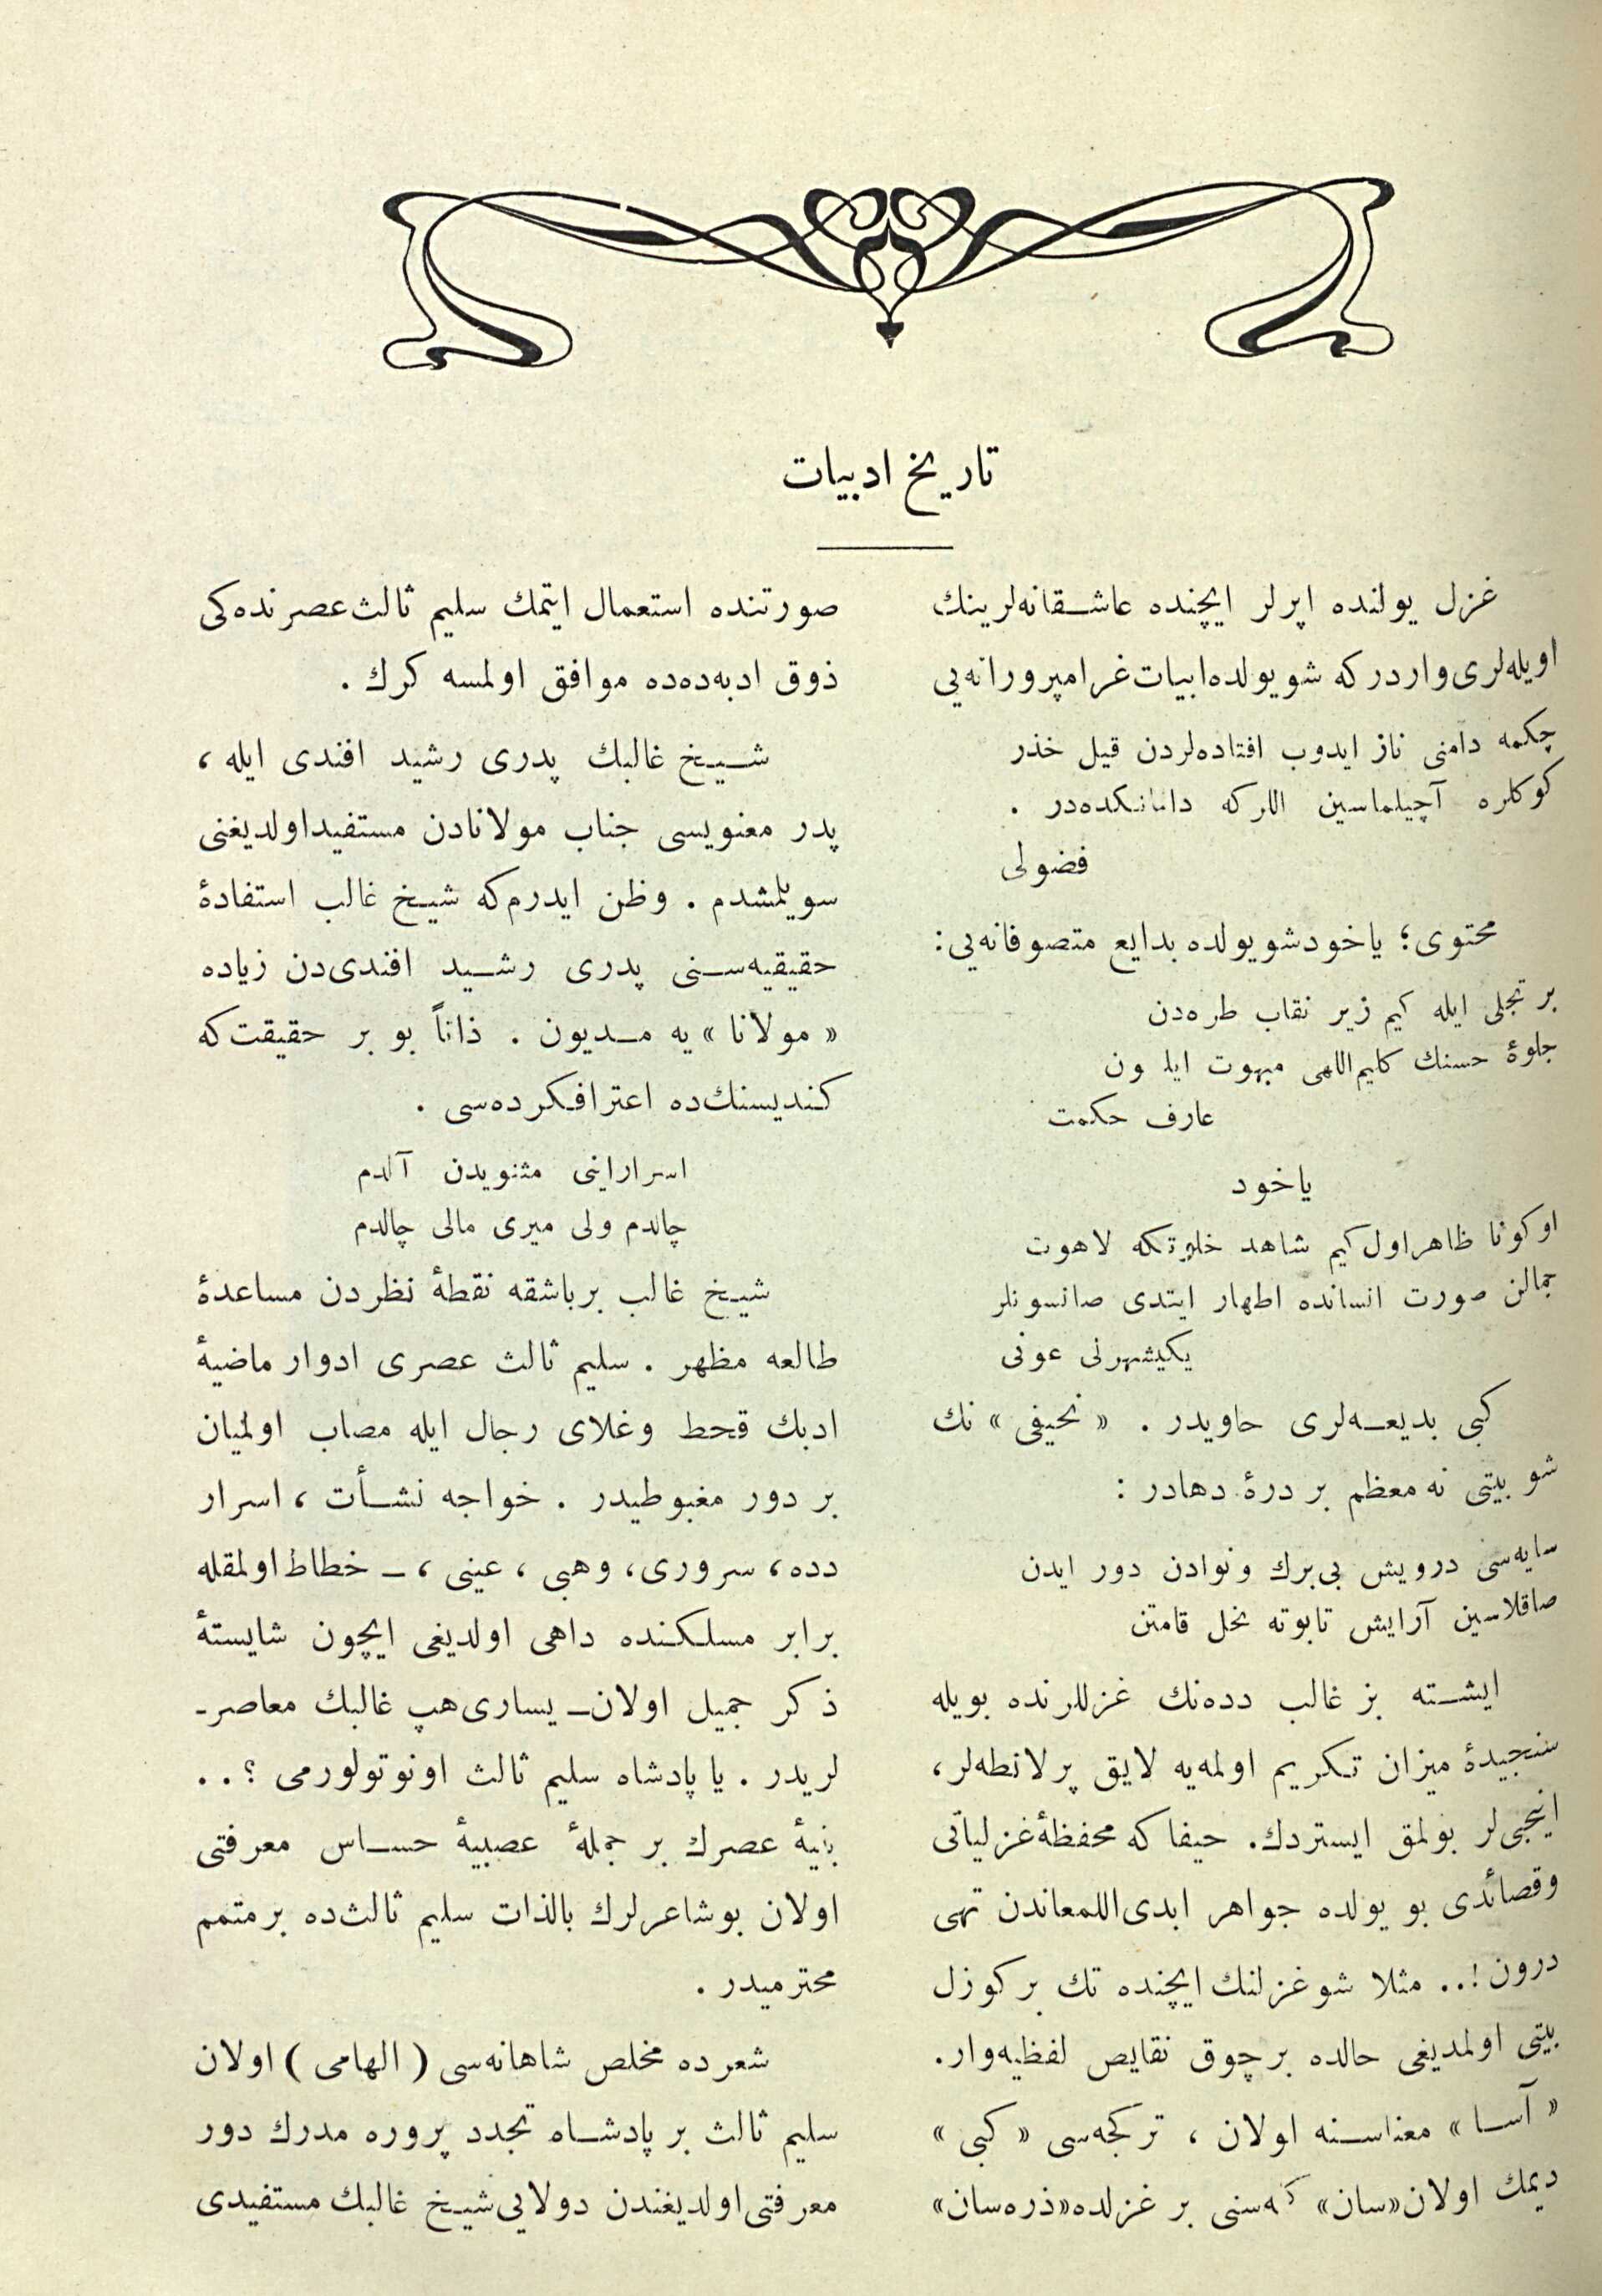 تاريخ ادبيات
غزل يولنده اپرلر ايچنده عاشقانه‌لرينك
اويله‌لرى واردركه شو يولده ابيات غرامپرورانه‌يى
چكمه دامنى ناز ايدوب افتاده‌لردن قيل خذر
كوكلره آچيلماسين اللركه دامانكده‌در .
فضولى
محتوى؛ ياخود شو يولده بدايع متصوفانه‌يى:
بر تجلى ايله كيم زير نقاب طره‌دن
جلوۀ حسنك كليم‌اللهى مبهوت ايله ون
عارف حكمت
ياخود
او كونا ظاهر اول كيم شاهد خلوتكه لاهوت
جمالن صورت انسانده اظهار ايتدى صانسونلر
يكيشهرلى عونى
كبى بديعه‌لرى حاويدر . « نحيفى » نك
شو بيتى نه معظم بر درۀ دهادر :
سايه‌سنى درويش بى‌برك ونوادن دور ايدن
صاقلاسين آرايش تابوته نخل قامتن
ايشته بز غالب دده‌نك غزللرنده بويله
سنجيدۀ ميزان تكريم اولمه‌يه لايق پرلانطه‌لر،
اينجى‌لر بولمق ايستردك. حيفا كه محفظۀ غزلياتى
وقصائدى بو يولده جواهر ابدى‌اللمعاندن تهى
درون !.. مثلا شو غزلنك ايچنده تك بر كوزل
بيتى اولمديغى حالده برچوق نقايص لفظيه‌وار.
« آسا » معناسنه اولان ، تركجه‌سى « كبى »
ديمك اولان «سان» كه‌سنى بر غزلده «ذره‌سان»
صورتنده استعمال ايتمك سليم ثالث عصرنده‌كى
ذوق ادبه‌ده‌ده موافق اولمسه كرك .
شيخ غالبك پدرى رشيد افندى ايله ،
پدر معنويسى جناب مولانادن مستفيد اولديغنى
سويلمشدم . وظن ايدرم‌كه شيخ غالب استفادۀ
حقيقيه‌سنى پدرى رشيد افندى‌دن زياده
« مولانا » يه مديون . ذاتاً بو بر حقيقت‌كه
كنديسنك‌ده اعترافكرده‌سى .
اسرارينى مثنويدن آلدم
چالدم ولى ميرى مالى چالدم
شيخ غالب برباشقه نقطۀ نظردن مساعدۀ
طالعه مظهر . سليم ثالث عصرى ادوار ماضيۀ
ادبك قحط وغلاى رجال ايله مصاب اولميان
بر دور مغبوطيدر . خواجه نشأت ، اسرار
دده، سرورى، وهبى ، عينى ، ــ خطاط اولمقله
برابر مسلكنده داهى اولديغى ايچون شايستۀ
ذكر جميل اولان ــ يسارى هپ غالبك معاصر-
لريدر . يا پادشاه سليم ثالث اونوتولورمى ؟ ..
بنيۀ عصرك بر جملۀ عصبيۀ حساس معرفتى
اولان بو شاعرلرك بالذات سليم ثالث‌ده برمتمم
محترميدر .
شعرده مخلص شاهانه‌سى ( الهامى ) اولان
سليم ثالث بر پادشاه تجدد پروره مدرك دور
معرفتى اولديغندن دولايى شيخ غالبك مستفيدى